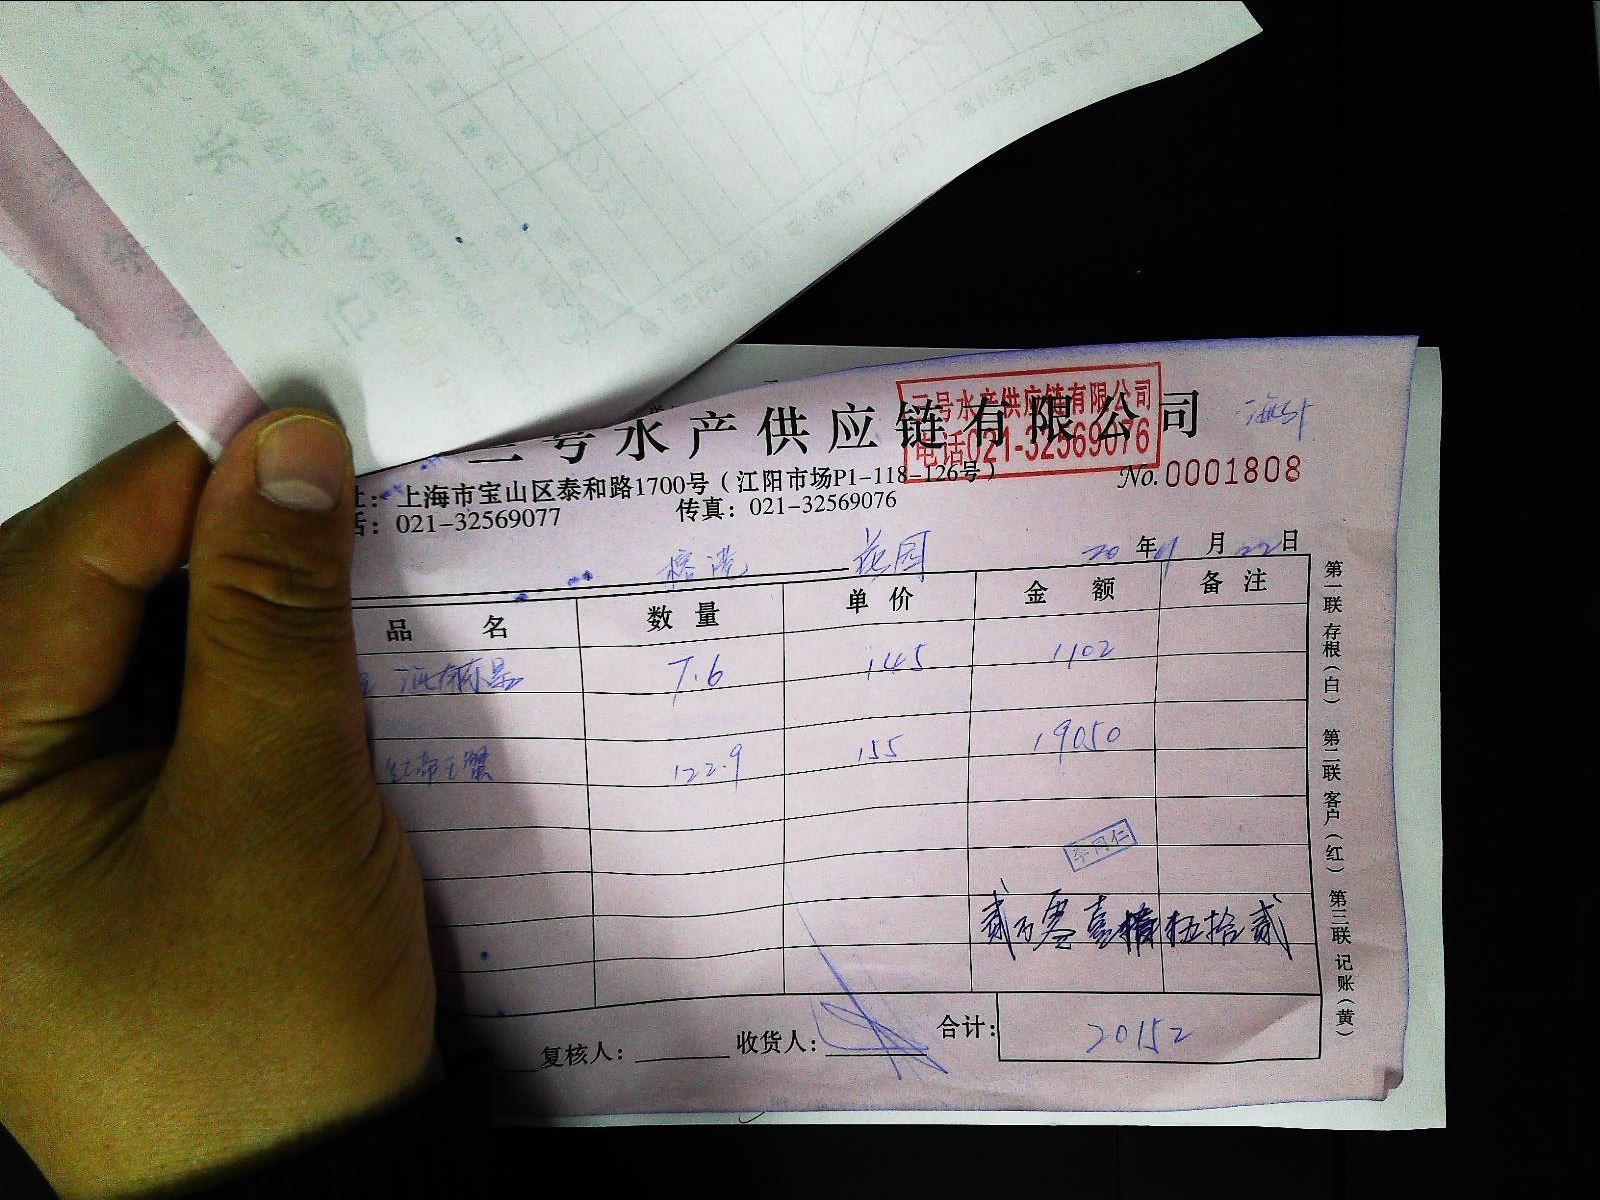 三号水产供应链有限公司
三号水产供应链有限公司
电话021-32569076
No.0001808
址：上海市宝山区泰和路1700号（江阳市场P1-118-126号）
话：021-32569077 传真：021-32569076
榕港 花园 20年 月22日
品名 数量 单价 金额 备注
7.6 145 1102
红帝王蟹 122.9 155 19050
李同仁
贰万零壹佰伍拾贰
复核人： 收货人： 合计： 20152
第一联 存根（白） 第二联 客户（红） 第三联 记账（黄）